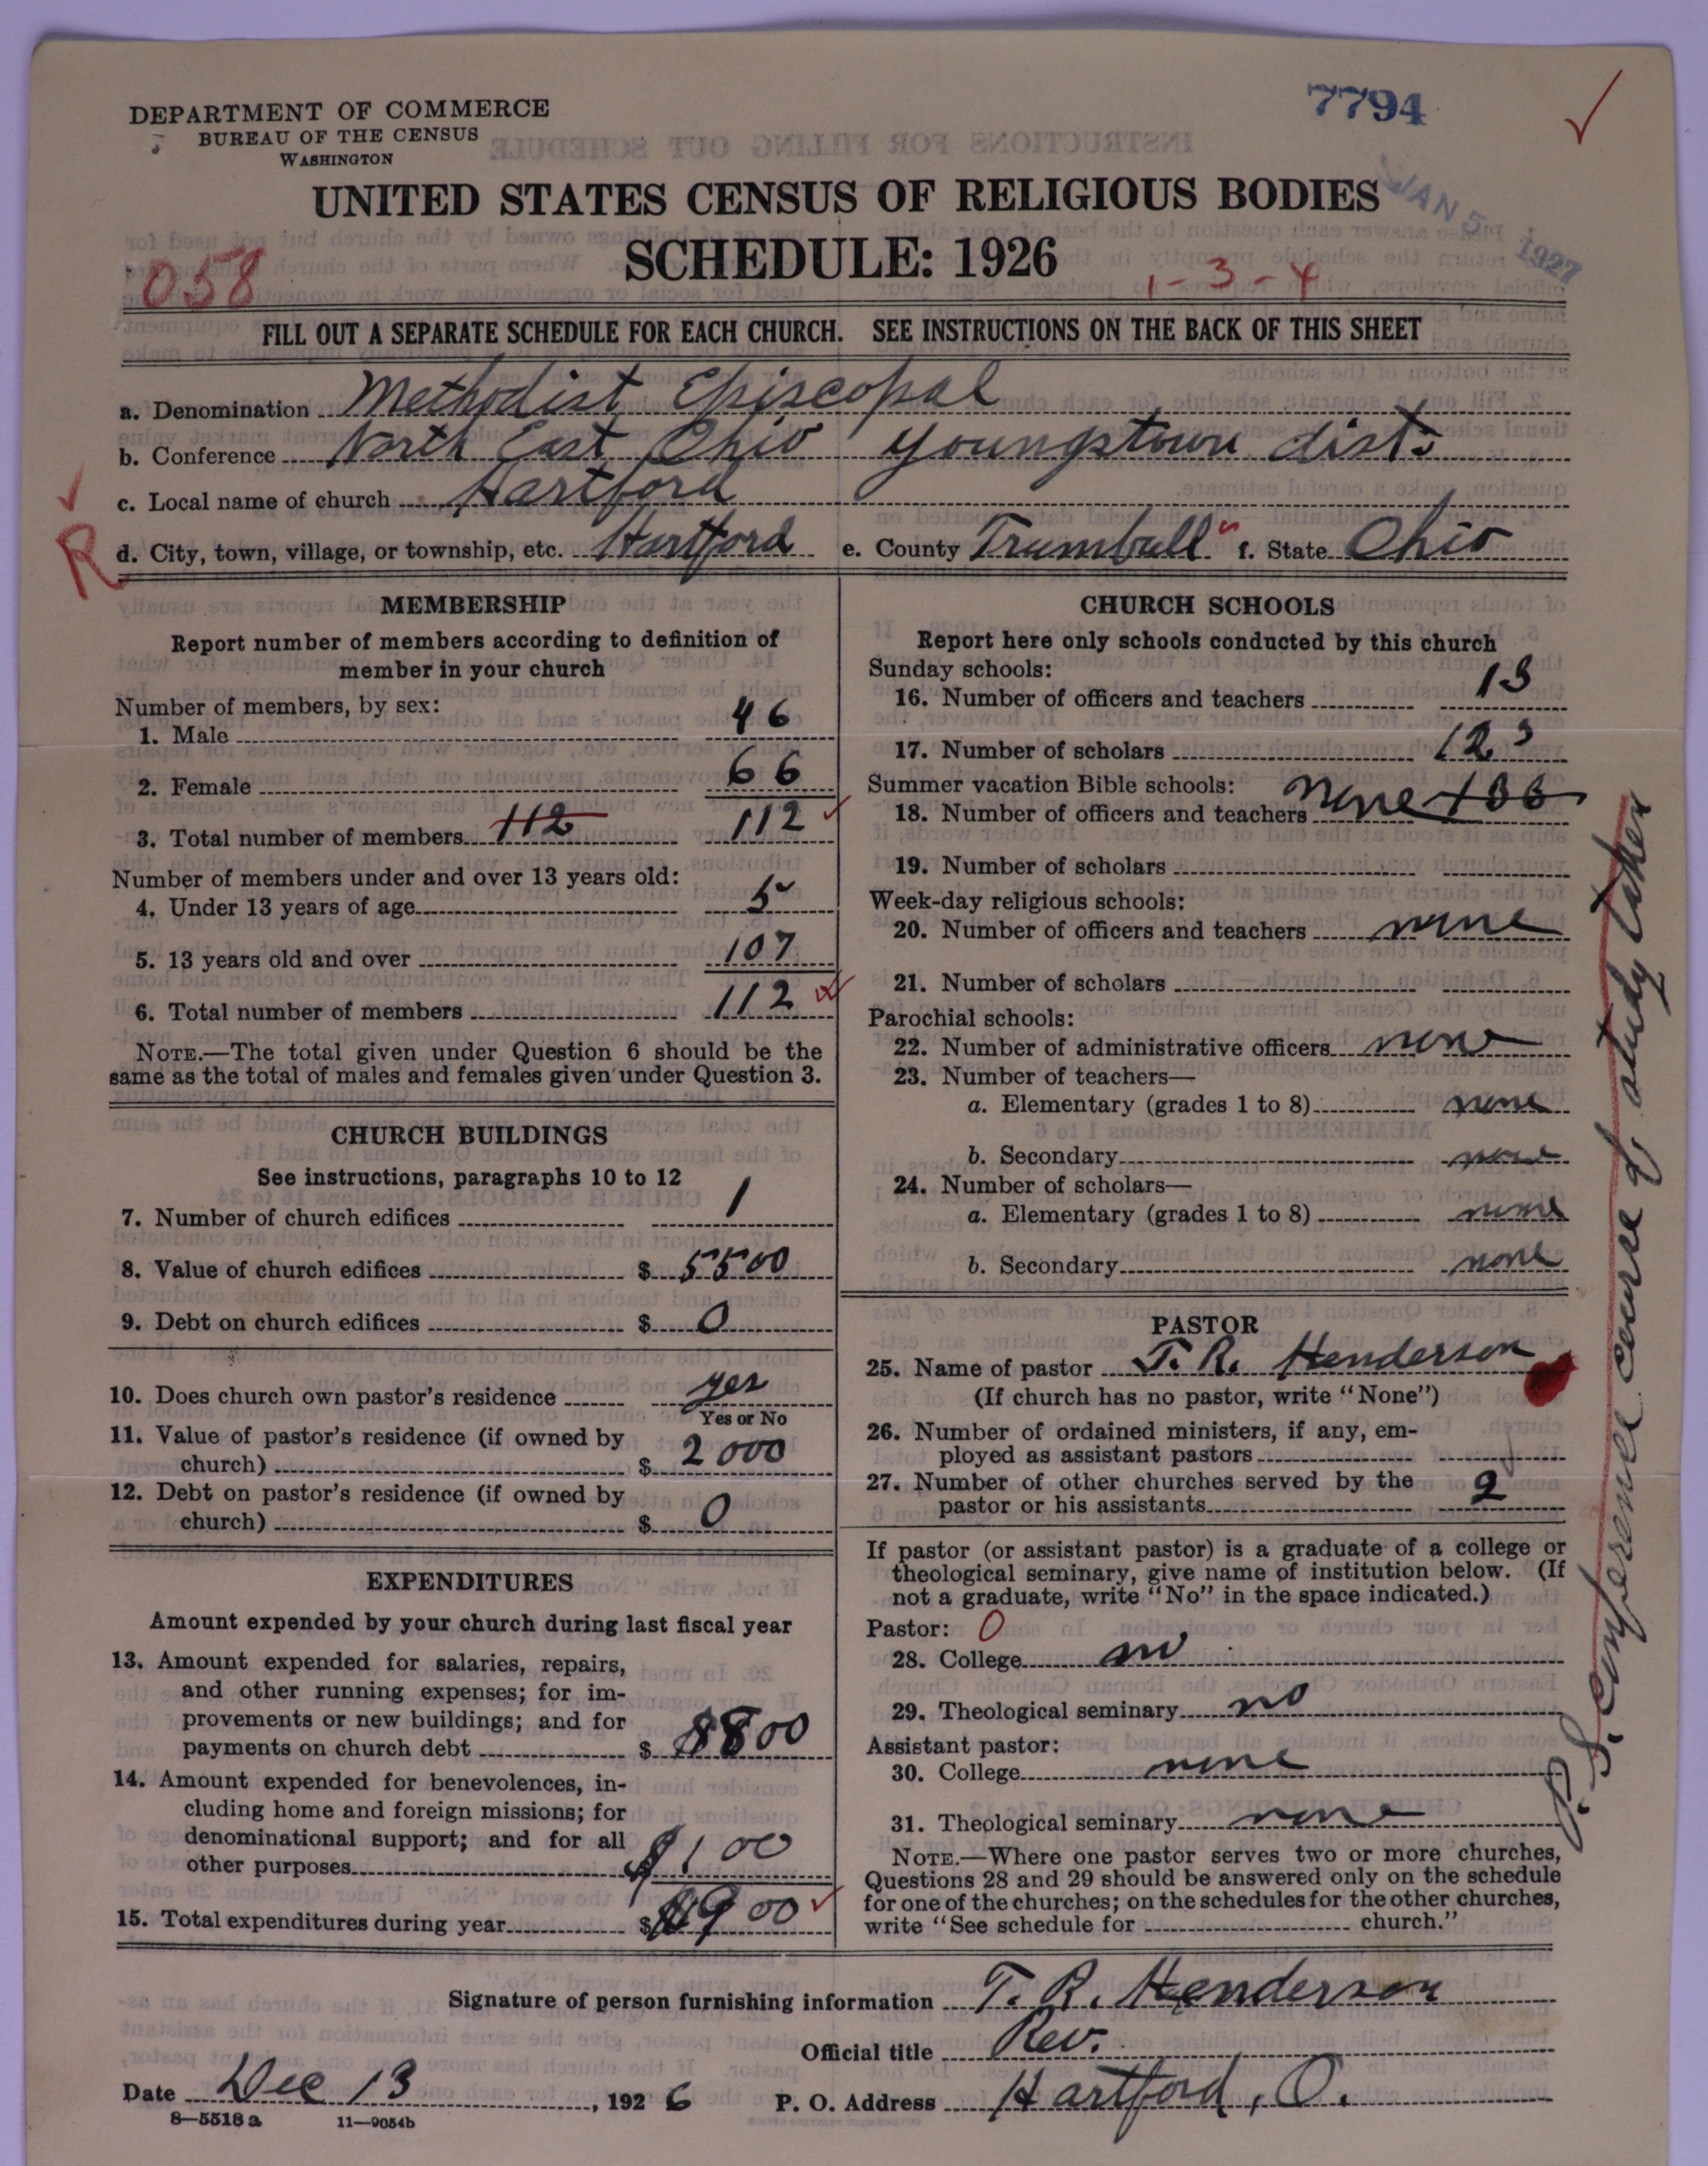 7794
DEPARTMENT OF COMMERCE
BUREAU OF THE CENSUS
WASHINGTON
UNITED STATES CENSUS OF RELIGIOUS BODIES
JAN 5 1927
SCHEDULE: 1926
058
1-3-4
FILL OUT A SEPARATE SCHEDULE FOR EACH CHURCH. SEE INSTRUCTIONS ON THE BACK OF THIS SHEET
a. Denomination Methodist Episcopal
b. Conference North East Ohio Youngstown dist.
c. Local name of church Hartford
R
d. City, town, village, or township, etc. Hartford e. County Trumbull f. State Ohio
MEMBERSHIP
Report number of members according to definition of
member in your church
Number of members, by sex:
1. Male 46
2. Female 66
3. Total number of members 112 112
Number of members under and over 13 years old:
4. Under 13 years of age 5
5. 13 years old and over 107
6. Total number of members 112
NOTE.—The total given under Question 6 should be the
same as the total of males and females given under Question 3.
CHURCH BUILDINGS
See instructions, paragraphs 10 to 12
7. Number of church edifices 1
8. Value of church edifices $ 5500
9. Debt on church edifices $ 0
10. Does church own pastor's residence yes
Yes or No
11. Value of pastor's residence (if owned by
church) $ 2000
12. Debt on pastor's residence (if owned by
church) $ 0
EXPENDITURES
Amount expended by your church during last fiscal year
13. Amount expended for salaries, repairs,
and other running expenses; for im-
provements or new buildings; and for
payments on church debt $ 800
14. Amount expended for benevolences, in-
cluding home and foreign missions; for
denominational support; and for all
other purposes $ 100
15. Total expenditures during year $ 900
CHURCH SCHOOLS
Report here only schools conducted by this church
Sunday schools:
16. Number of officers and teachers 13
17. Number of scholars 123
Summer vacation Bible schools:
18. Number of officers and teachers none
19. Number of scholars
Week-day religious schools:
20. Number of officers and teachers none
21. Number of scholars
Parochial schools:
22. Number of administrative officers none
23. Number of teachers—
a. Elementary (grades 1 to 8) none
b. Secondary none
24. Number of scholars—
a. Elementary (grades 1 to 8) none
b. Secondary none
PASTOR
25. Name of pastor T. R. Henderson
(If church has no pastor, write "None")
26. Number of ordained ministers, if any, em-
ployed as assistant pastors
27. Number of other churches served by the
pastor or his assistants 2
If pastor (or assistant pastor) is a graduate of a college or
theological seminary, give name of institution below. (If
not a graduate, write "No" in the space indicated.)
Pastor: 0
28. College no
29. Theological seminary no
Assistant pastor:
30. College none
31. Theological seminary none
NOTE.—Where one pastor serves two or more churches,
Questions 28 and 29 should be answered only on the schedule
for one of the churches; on the schedules for the other churches,
write "See schedule for church."
P.S. Conference course of study taken
Signature of person furnishing information T. R. Henderson
Official title Rev.
Date Dec 13, 1926 P. O. Address Hartford, O.
8—5518a 11—9054b